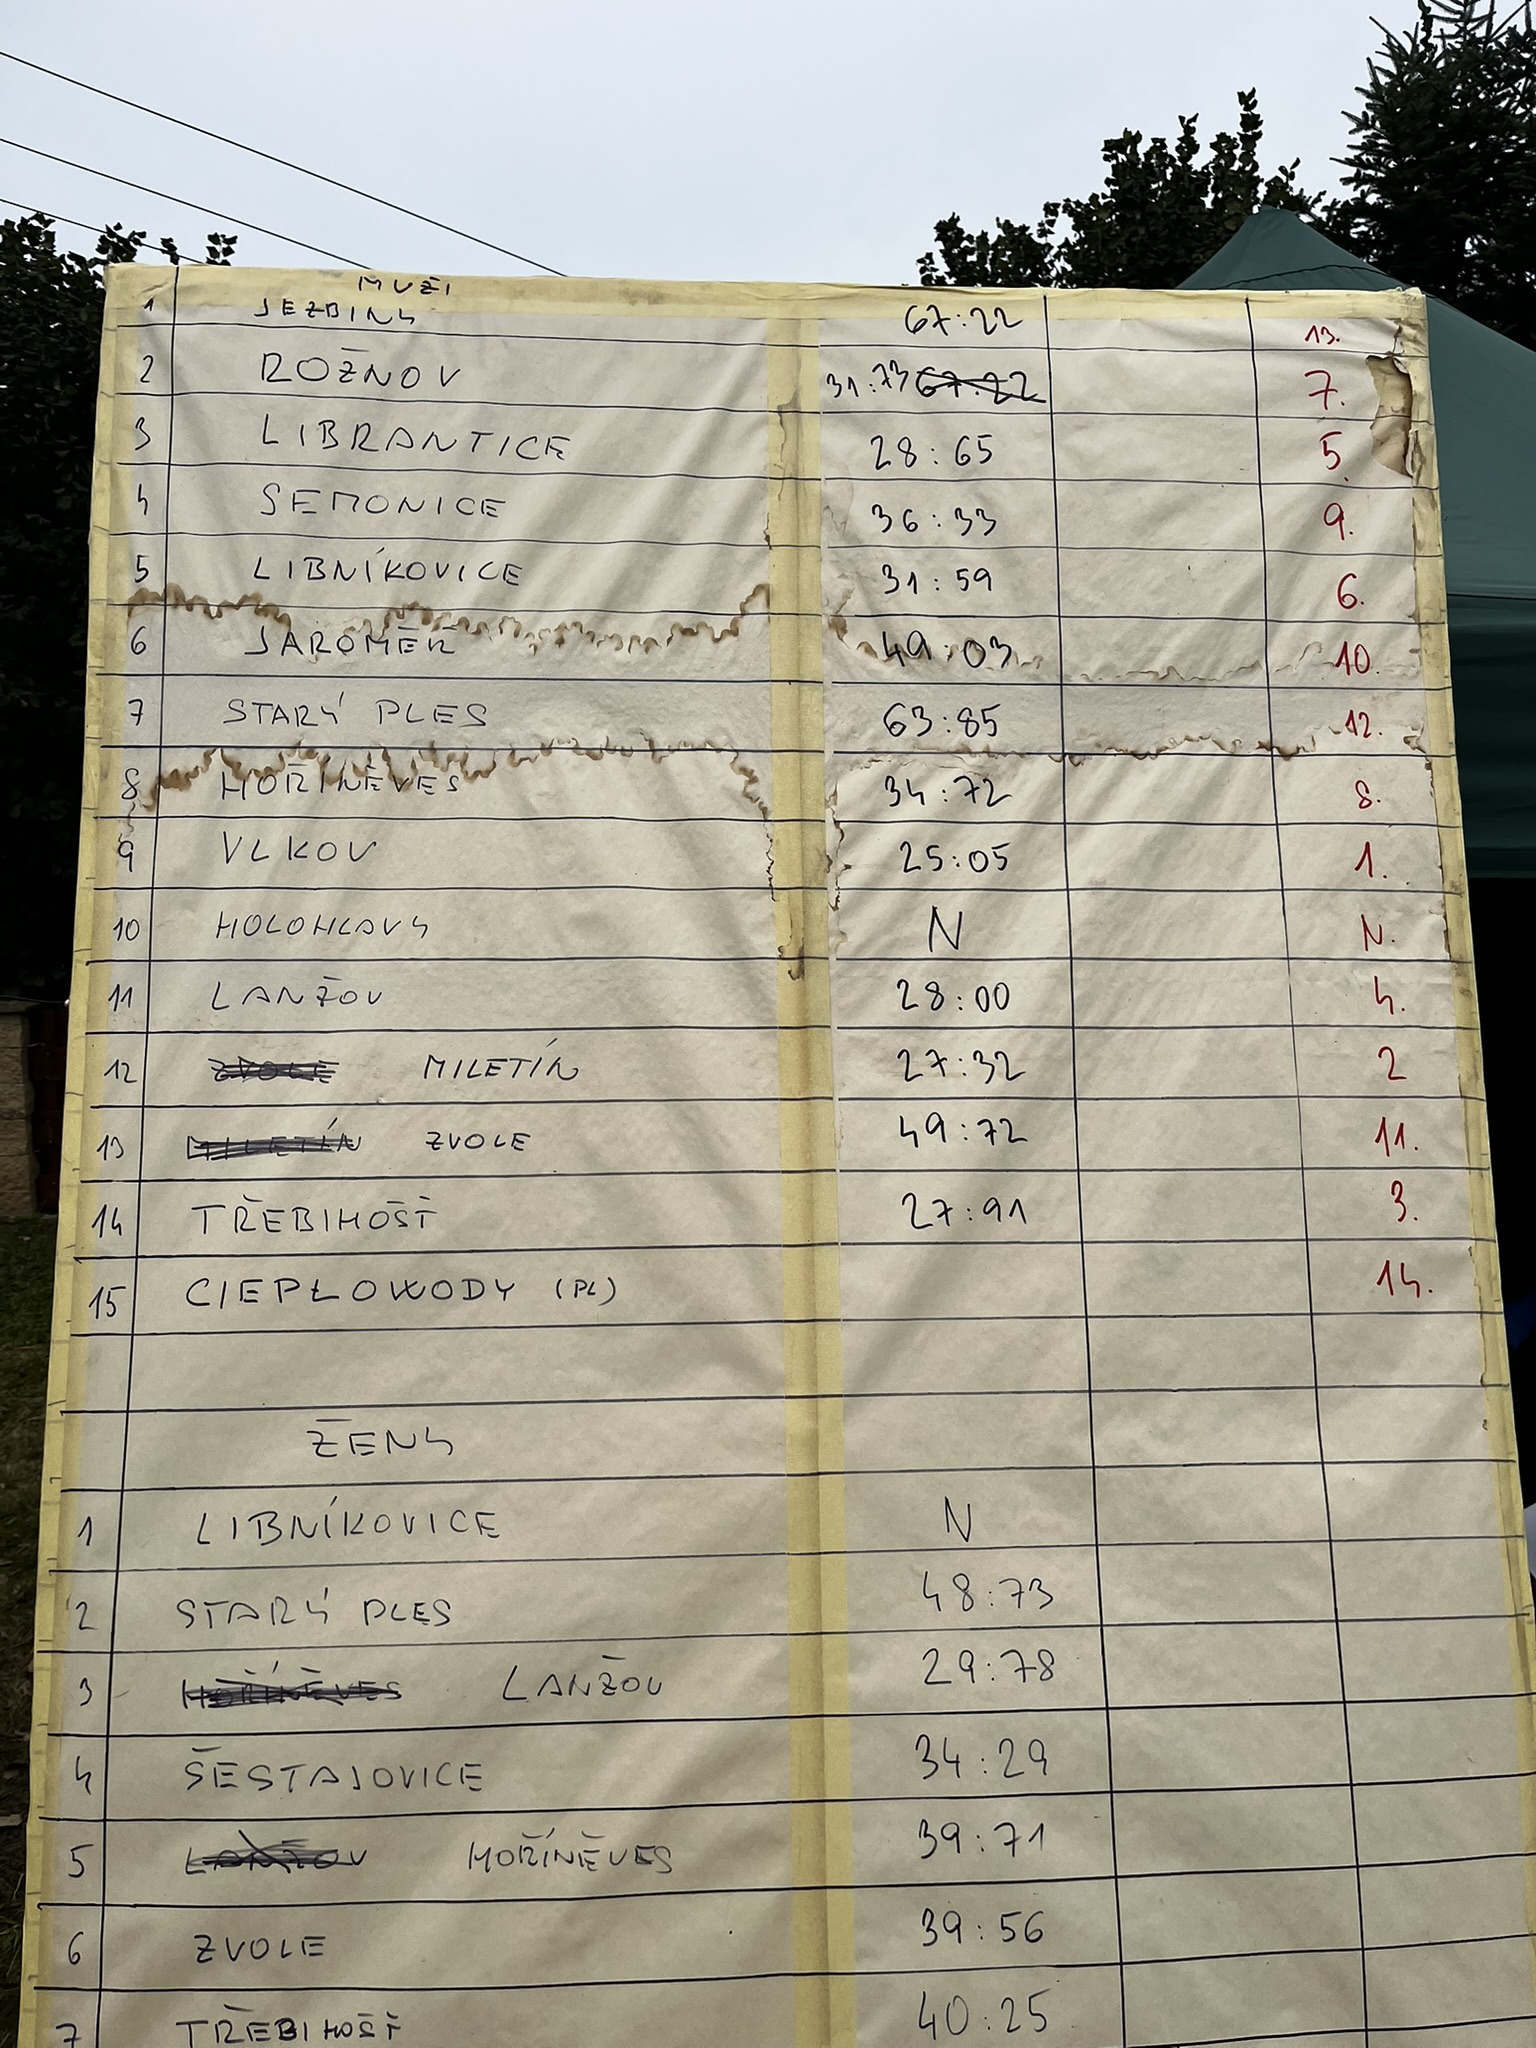 MUŽI
1 JEZBINY 67:22 13.
2 ROŽNOV 31:73 67:22 7.
3 LIBRANTICE 28:65 5.
4 SEMONICE 36:33 9.
5 LIBNÍKOVICE 31:59 6.
6 JAROMĚŘ 49:03 10.
7 STARÝ PLES 63:85 12.
8 HOŘINĚVES 34:72 8.
9 VLKOV 25:05 1.
10 HOLOHLAVY N N.
11 LANŽOV 28:00 4.
12 ZVOLE MILETÍN 27:32 2
13 MILETÍN ZVOLE 49:72 11.
14 TŘEBIHOŠŤ 27:91 3.
15 CIEPŁOWODY (PL) 14.
ŽENY
1 LIBNÍKOVICE N
2 STARÝ PLES 48:73
3 HOŘÍNĚVES LANŽOV 29:78
4 ŠESTAJOVICE 34:29
5 LANŽOV HOŘÍNĚVES 39:71
6 ZVOLE 39:56
7 TŘEBIHOŠŤ 40:25